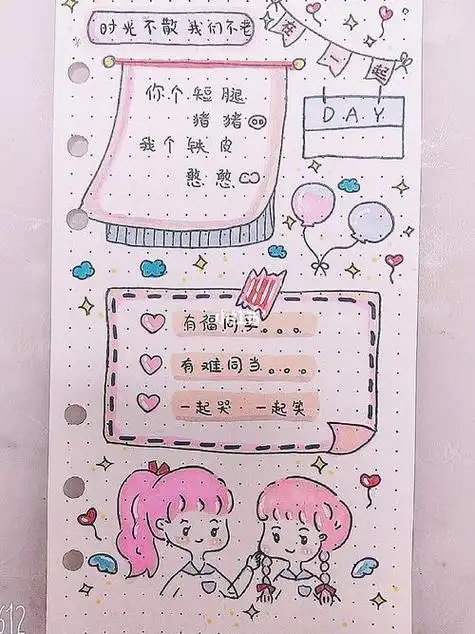 时光不散 我们不老
在一起
D.A.Y.
你个 短腿
猪猪
我个铁皮
憨憨
有福同享。。。
有难同当。。。。
一起哭 一起笑